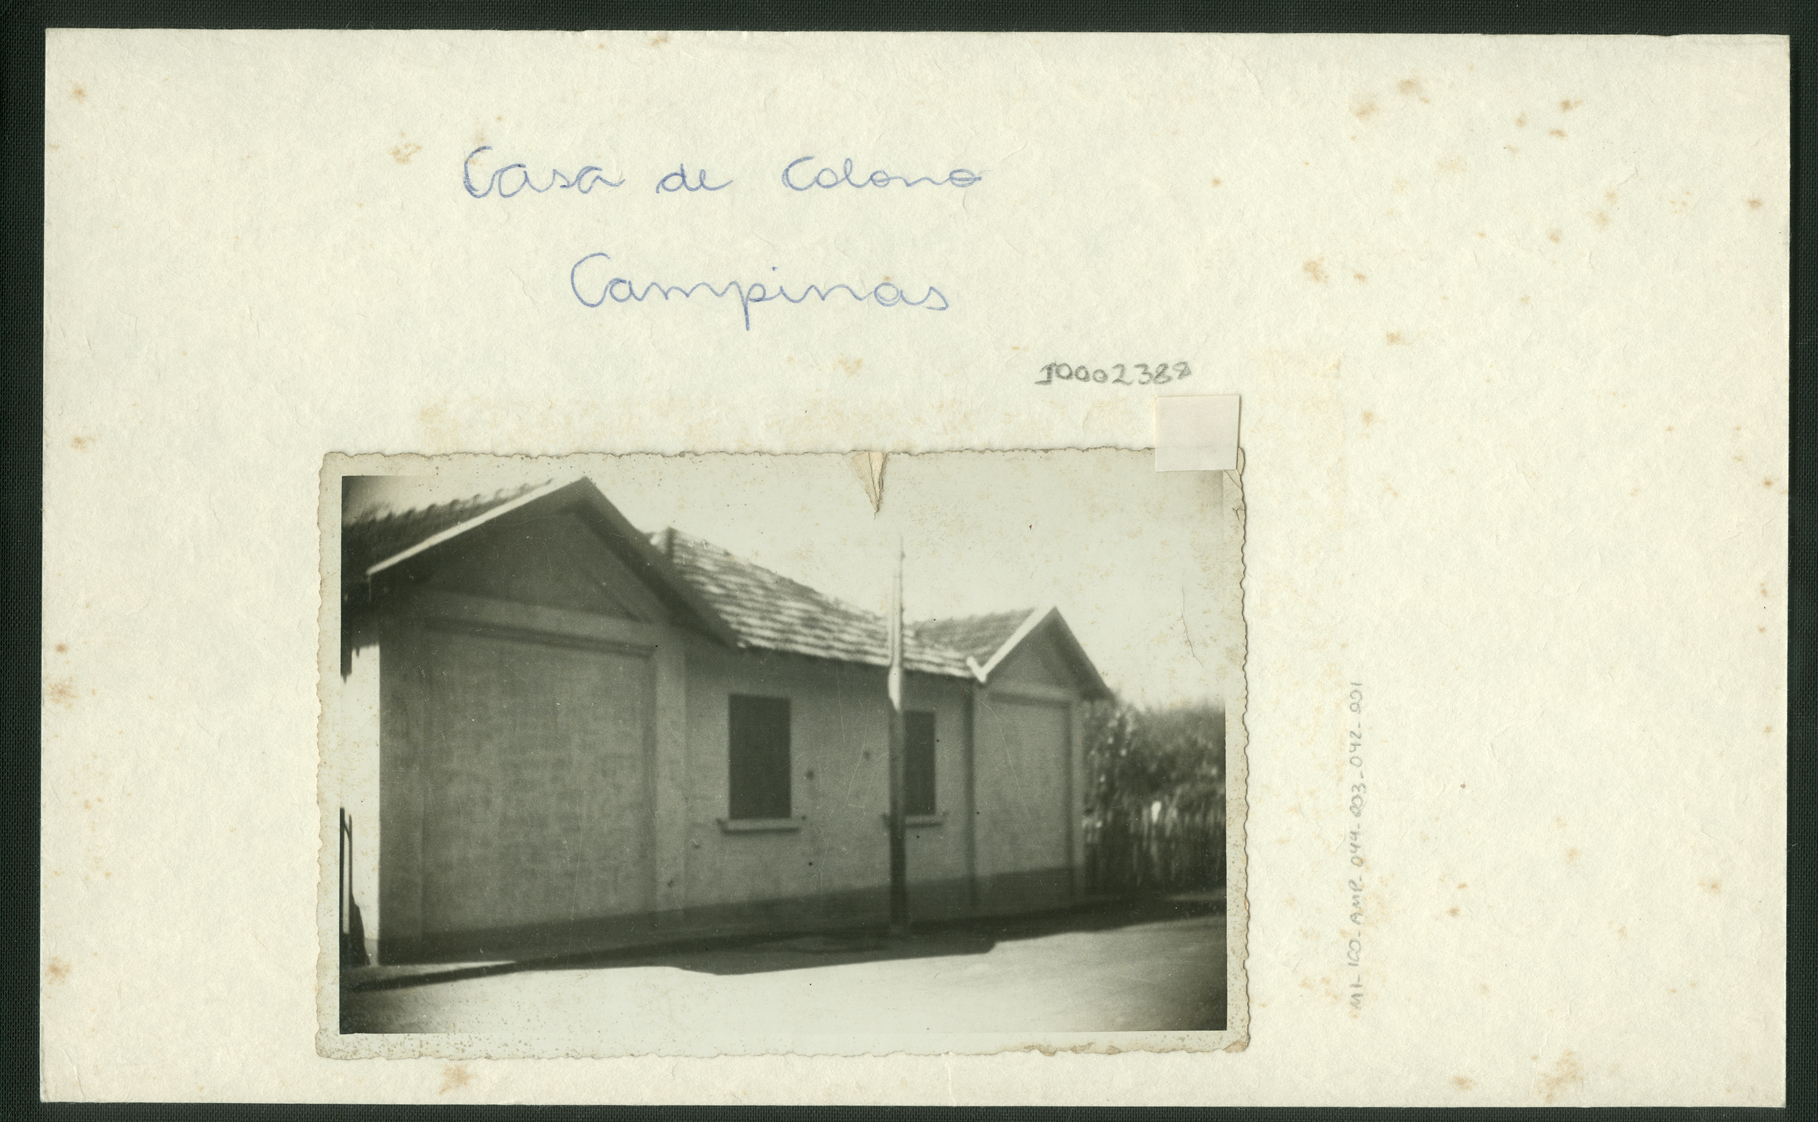 Casa de Colono
Campinas
10002388
MI-100-AMP-044-003-042-001